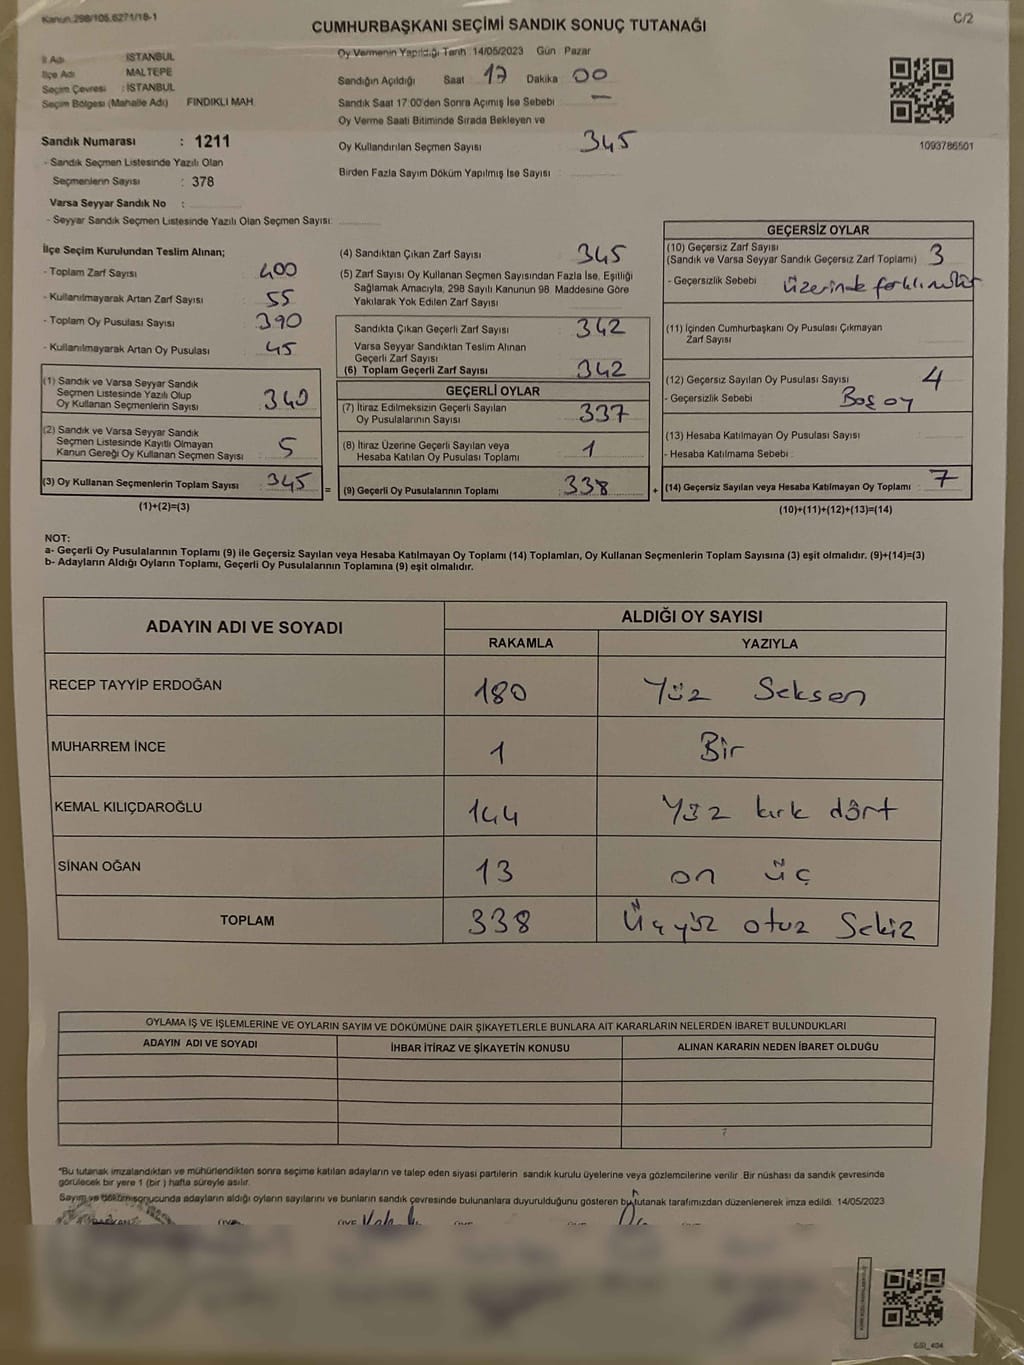 Kanun.298/105,6271/18-1
C/2
CUMHURBAŞKANI SEÇİMİ SANDIK SONUÇ TUTANAĞI
İl Adı : İSTANBUL
İlçe Adı MALTEPE
Seçim Çevresi : İSTANBUL
Seçim Bölgesi (Mahalle Adı) FINDIKLI MAH.
Oy Vermenin Yapıldığı Tarih :14/05/2023 Gün : Pazar
Sandığın Açıldığı Saat 17 Dakika 00
Sandık Saat 17:00'den Sonra Açımış İse Sebebi : —
Oy Verme Saati Bitiminde Sırada Bekleyen ve
Oy Kullandırılan Seçmen Sayısı 345
Birden Fazla Sayım Döküm Yapılmış İse Sayısı :
1093786501
Sandık Numarası : 1211
- Sandık Seçmen Listesinde Yazılı Olan
Seçmenlerin Sayısı : 378
Varsa Seyyar Sandık No :
- Seyyar Sandık Seçmen Listesinde Yazılı Olan Seçmen Sayısı:
İlçe Seçim Kurulundan Teslim Alınan;
- Toplam Zarf Sayısı : 400
- Kullanılmayarak Artan Zarf Sayısı : 55
- Toplam Oy Pusulası Sayısı : 390
- Kullanılmayarak Artan Oy Pusulası : 45
(1) Sandık ve Varsa Seyyar Sandık
Seçmen Listesinde Yazılı Olup
Oy Kullanan Seçmenlerin Sayısı : 340
(2) Sandık ve Varsa Seyyar Sandık
Seçmen Listesinde Kayıtlı Olmayan
Kanun Gereği Oy Kullanan Seçmen Sayısı : 5
(3) Oy Kullanan Seçmenlerin Toplam Sayısı : 345 =
(1)+(2)=(3)
(4) Sandıktan Çıkan Zarf Sayısı : 345
(5) Zarf Sayısı Oy Kullanan Seçmen Sayısından Fazla İse, Eşitliği
Sağlamak Amacıyla, 298 Sayılı Kanunun 98. Maddesine Göre
Yakılarak Yok Edilen Zarf Sayısı :
Sandıkta Çıkan Geçerli Zarf Sayısı : 342
Varsa Seyyar Sandıktan Teslim Alınan
Geçerli Zarf Sayısı :
(6) Toplam Geçerli Zarf Sayısı : 342
GEÇERLİ OYLAR
(7) İtiraz Edilmeksizin Geçerli Sayılan
Oy Pusulalarının Sayısı : 337
(8) İtiraz Üzerine Geçerli Sayılan veya
Hesaba Katılan Oy Pusulası Toplamı : 1
(9) Geçerli Oy Pusulalarının Toplamı : 338 +
GEÇERSİZ OYLAR
(10) Geçersiz Zarf Sayısı
(Sandık ve Varsa Seyyar Sandık Geçersiz Zarf Toplamı) : 3
- Geçersizlik Sebebi : üzerinde
(11) İçinden Cumhurbaşkanı Oy Pusulası Çıkmayan
Zarf Sayısı
(12) Geçersiz Sayılan Oy Pusulası Sayısı : 4
- Geçersizlik Sebebi : Boş oy
(13) Hesaba Katılmayan Oy Pusulası Sayısı :
- Hesaba Katılmama Sebebi :
(14) Geçersiz Sayılan veya Hesaba Katılmayan Oy Toplamı : 7
(10)+(11)+(12)+(13)=(14)
NOT:
a- Geçerli Oy Pusulalarının Toplamı (9) ile Geçersiz Sayılan veya Hesaba Katılmayan Oy Toplamı (14) Toplamları, Oy Kullanan Seçmenlerin Toplam Sayısına (3) eşit olmalıdır. (9)+(14)=(3)
b- Adayların Aldığı Oyların Toplamı, Geçerli Oy Pusulalarının Toplamına (9) eşit olmalıdır.
ADAYIN ADI VE SOYADI ALDIĞI OY SAYISI
RAKAMLA YAZIYLA
RECEP TAYYİP ERDOĞAN 180 Yüz Seksen
MUHARREM İNCE 1 Bir
KEMAL KILIÇDAROĞLU 144 Yüz kırk dört
SİNAN OĞAN 13 on üç
TOPLAM 338 Üçyüz otuz Sekiz
OYLAMA İŞ VE İŞLEMLERİNE VE OYLARIN SAYIM VE DÖKÜMÜNE DAİR ŞİKAYETLERLE BUNLARA AİT KARARLARIN NELERDEN İBARET BULUNDUKLARI
ADAYIN ADI VE SOYADI İHBAR İTİRAZ VE ŞİKAYETİN KONUSU ALINAN KARARIN NEDEN İBARET OLDUĞU
"Bu tutanak imzalandıktan ve mühürlendikten sonra seçime katılan adayların ve talep eden siyasi partilerin sandık kurulu üyelerine veya gözlemcilerine verilir. Bir nüshası da sandık çevresinde
görülecek bir yere 1 (bir ) hafta süreyle asılır.
Sayım ve döküm sonucunda adayların aldığı oyların sayılarını ve bunların sandık çevresinde bulunanlara duyurulduğunu gösteren bu tutanak tarafımızdan düzenlenerek imza edildi. 14/05/2023